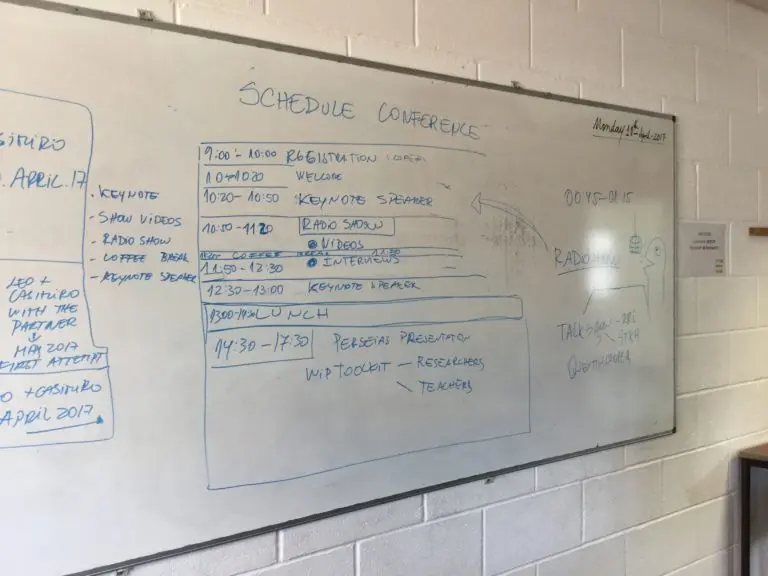 SCHEDULE CONFERENCE
Monday 10th April 2017
CASIMIRO
APRIL.17
LEO +
CASIMIRO
WITH THE
PARTNER
MAY 2017
FIRST ATTEMPT
+ CASIMIRO
APRIL 2017
- KEYNOTE
- SHOW VIDEOS
- RADIO SHOW
- COFFEE BREAK
- KEYNOTE SPEAKER
9:00 - 10:00 REGISTRATION
10-10:20 WELCOME
10:20- 10:50 KEYNOTE SPEAKER
10:50-1120 RADIO SHOW
VIDEOS
COFFEE
11:50-12:30 INTERVIEWS
12:30-13:00 KEYNOTE SPEAKER
LUNCH
14:30-17:30 PERSEIAS PRESENTATION
WIP TOOLKIT - RESEARCHERS
TEACHERS
00:45-01:15
RADIO
TALK